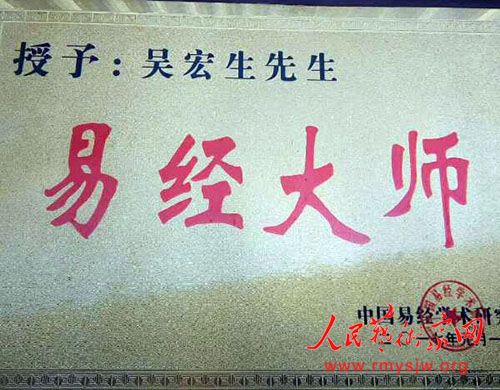 授予：吴宏生先生
易经大师
中国易经学术研究
年元月一
人民艺术家网
www.rmysjw.org